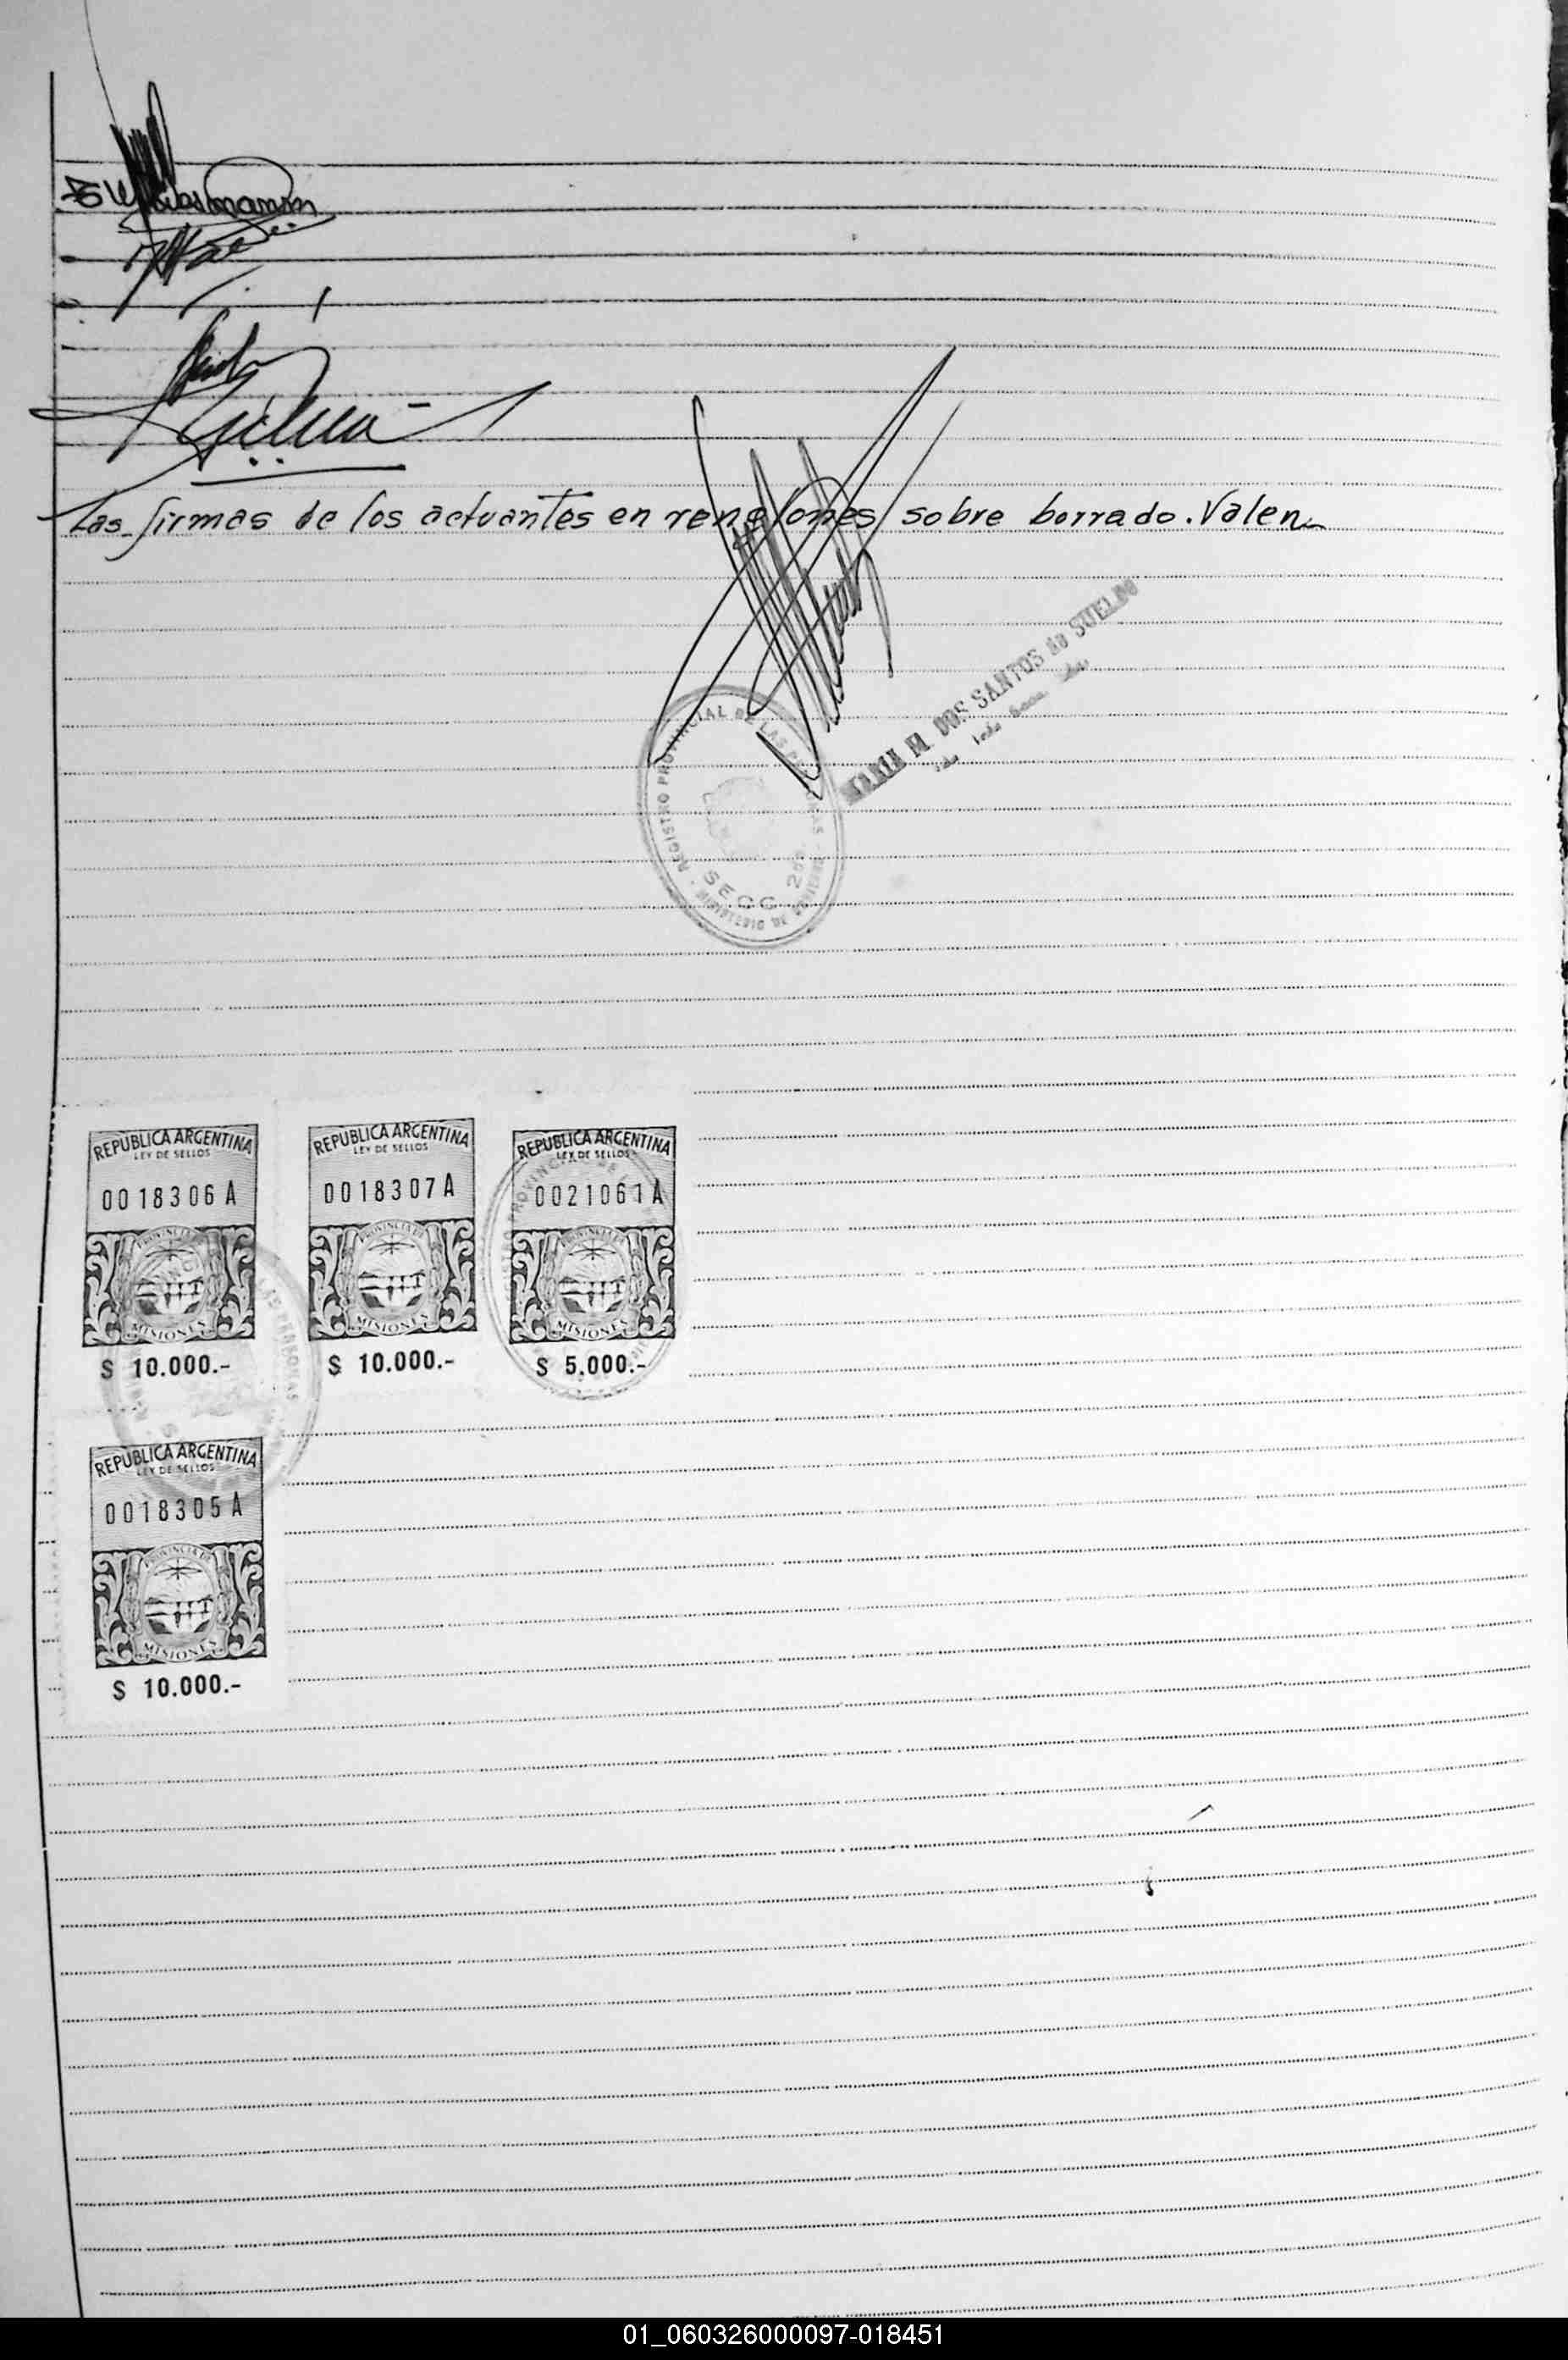 Las firmas de los actuantes en renglones sobre borrado. Valen
DOS SANTOS de SUELDO
REGISTRO PROVINCIAL DE LAS PERSONAS
SECC. 2da
REPUBLICA ARGENTINA
LEY DE SELLOS
0018306 A
PROVINCIA DE
MISIONES
$ 10.000.-
REPUBLICA ARGENTINA
LEY DE SELLOS
0018307 A
PROVINCIA DE
MISIONES
$ 10.000.-
REPUBLICA ARGENTINA
LEY DE SELLOS
0021061 A
PROVINCIA DE
MISIONES
$ 5.000.-
REPUBLICA ARGENTINA
LEY DE SELLOS
0018305 A
PROVINCIA DE
MISIONES
$ 10.000.-
01_060326000097-018451